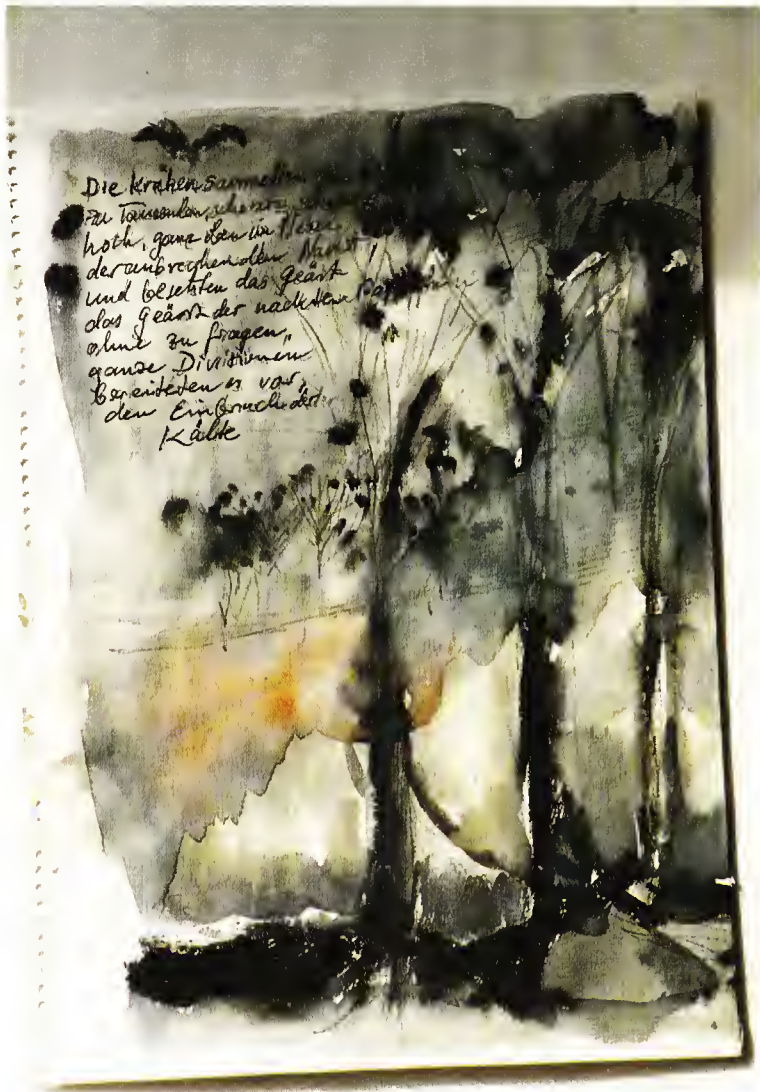 Die Krähen sammelten
zu Tausenden, schwarz
hoch, ganz oben im
der anbrechenden Nacht
und besetzten das Geäst
das Geäst der nächsten
ohne zu fragen,
ganze Divisionen
bereiteten es vor,
den Einbruch der
Kälte